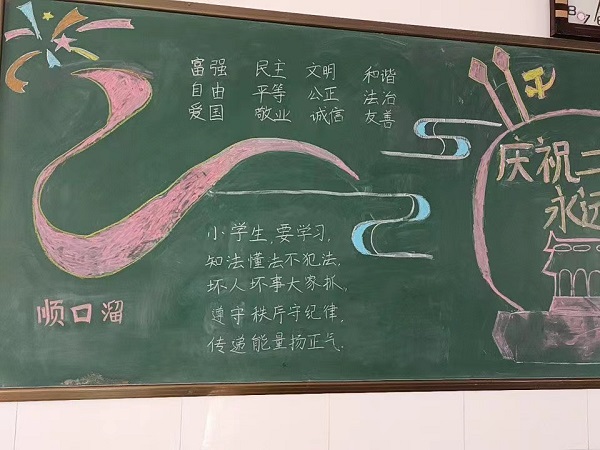 富强 民主 文明 和谐
自由 平等 公正 法治
爱国 敬业 诚信 友善
庆祝二
永远
小学生,要学习,
知法懂法不犯法,
坏人坏事大家抓,
遵守秩序守纪律,
传递能量扬正气.
顺口溜